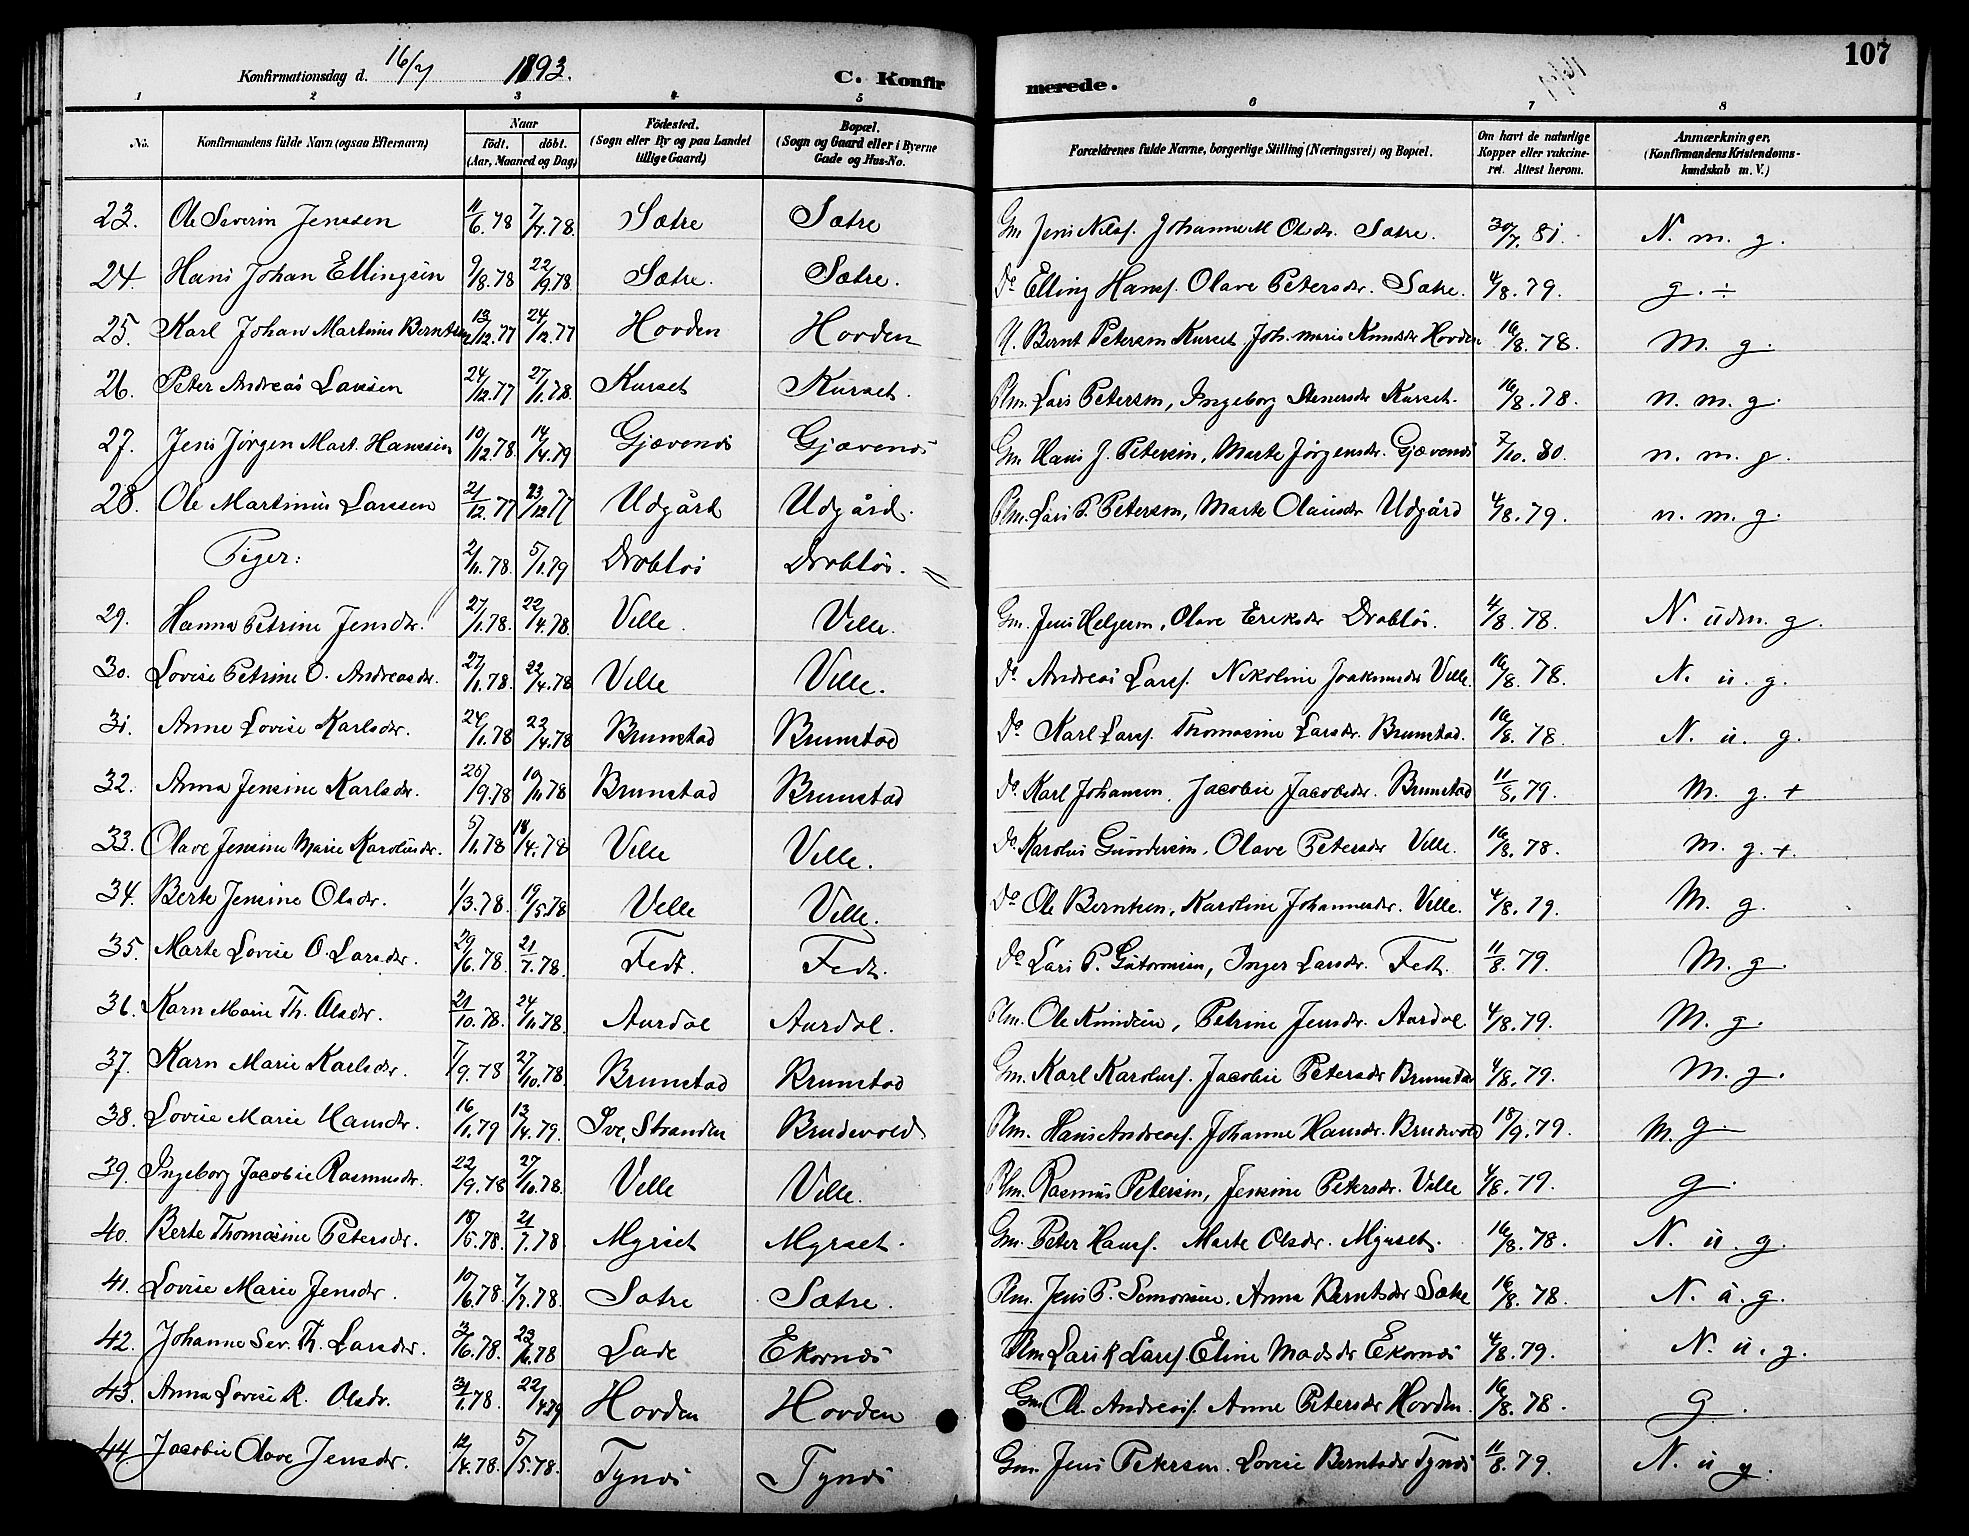 Konfirmationsdag d. 16/7 1893. C. Konfirmerede. 107
1 2 3 4 5 6 7 8
No. Konfirmandens fulde Navn (ogsaa Efternavn) Naar födt. döbt. (Aar, Maaned og Dag) Födested. (Sogn eller By og paa Landet tillige Gaard) Bopæl. (Sogn og Gaard eller i Byerne Gade og Hus-No. Forældrenes fulde Navne, borgerlige Stilling (Næringsvei) og Bopæl. Om havt de naturlige Kopper eller vakcineret. Attest herom. Anmærkninger, (Konfirmandens Kristendomskundskab m. V.)
23. Ole Severin Jenssen 11/6.78 7/7.78 Sætre Sætre Gm. Jens Nilss. Johanne M Olsdr. Sætre. 30/7.81. N. m. g.
24. Hans Johan Ellingsen 9/8.78 22/9.78 Sætre. Sætre. Do Elling Hanss. Olave Petersdr. Sætre. 4/8.79. g. ÷
25. Karl Johan Martinus Berntsen 13/12.77 24/12.77 Hovden Hovden U. Bernt Petersen Kurset Joh. Marie Knutsdr Hovden 16/8.78. M. g.
26. Peter Andreas Larssen 24/12.77 27/1.78 Kurset Kurset. Plm. Lars Petersen, Ingeborg Stenersdr Kurset. 16/8.78. n. m. g.
27. Jens Jørgen Mart. Hanssen 10/12.78 14/4.79 Gjævenes Gjævenes Gm. Hans J. Petersen, Marte Jørgensdr. Gjævenes 7/10.80. n. m. g.
28. Ole Martinus Larssen 21/12.77 23/12.77 Udgård Udgård. Plm. Lars P. Petersen, Marte Olausdr Udgård 4/8.79. n. m. g.
Piger: 2/11.78 5/1.79 Drabløs Drabløs.
29. Hanna Petrine Jensdr. 27/1.78 22/4.78 Velle. Velle. Gm. Jens Helgesen, Olave Eriksdr Drabløs. 4/8.78. N. uden. g.
30. Lovise Petrine O. Andreasdr. 27/1.78. 22/4.78 Velle Velle. Do Andreas Larss. Nikoline Joakimsdr Velle. 16/8.78. N. u. g.
31. Anne Lovise Karlsdr. 24/1.78 22/4.78 Brunstad Brunstad Do Karl Larss. Thomasine Larsdr. Brunstad. 16/8.78. N. u. g.
32. Anna Jensine Karlsdr. 26/9.78 10/11.78 Brunstad Brunstad Do Karl Johansen, Jacobie Jacobsdr. Brunstad 11/8.79. M. g. +
33. Olave Jensine Marie Karolusdr. 5/1.78 18/4.78 Velle Velle. Do Karolus Gundersen, Olave Petersdr Velle. 16/8.78. M. g. +.
34. Berte Jensine Olsdr. 1/3.78. 19/5.78 Velle Velle. Do Ole Berntsen, Karoline Johannesdr. Velle. 4/8.79. M. g.
35. Marte Lovise O. Larsdr. 29/6.78. 21/7.78. Fedt. Fedt. Do Lars P. Guttormsen, Inger Larsdr. Fedt. 11/8.79. M. g.
36. Karn Marie Th. Olsdr. 21/10.78. 24/11.78. Aurdal Aurdal. Plm. Ole Knudsen, Petrine Jensdr. Aurdal 4/8.79. M. g.
37. Karn Marie Karlsdr. 7/9.78 27/10.78. Brunstad Brunstad Gm. Karl Karoluss. Jacobie Petersdr Brunstad 4/8.79. M. g.
38. Lovise Marie Hansdr. 16/1.79 13/4.79. Sve, Stranden Brudevold Plm. Hans Andreass. Johanne Hansdr. Brudevold 18/9.79. M. g.
39. Ingeborg Jacobie Rasmusdr. 22/9.78 27/10.78. Velle Velle. Plm. Rasmus Petersen, Jensine Petersdr. Velle 4/8.79. g.
40. Berte Thomasine Petersdr. 18/5.78. 21/7.78 Myrset Myrset. Gm. Peter Hanss. Marte Olsdr. Myrset. 16/8.78. N. u. g.
41. Lovise Marie Jensdr. 10/6.78. 7/7.78. Sætre Sætre. Plm. Jens P. Simonsen, Anna Berntsdr Sætre 16/8.78. N. u. g.
42. Johanne Sev. Th. Larsdr. 3/6.78. 23/6.78 Lade Ekornes Plm Lars K Larss. Eline Madsdr Ekornes 4/8.79. N. u. g.
43. Anna Lovise R. Olsdr. 31/1.78. 22/4.79 Hovden Hovden Gm Ole Andreass. Anne Petersdr Hovden. 16/8.78. g.
44 Jacobie Olave Jensdr. 12/4.78. 5/5.78. Tynes Tynes Gm. Jens Petersen. Lovise Berntsdr Tynes 11/8.79. N. u g.